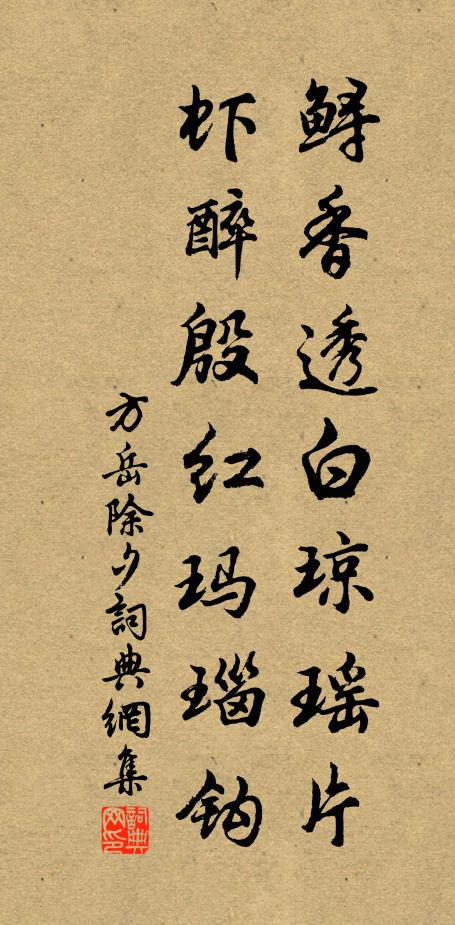 鲟香透白琼瑶片
虾醉殷红玛瑙钩
方岳除夕詞典網集
詞典网印